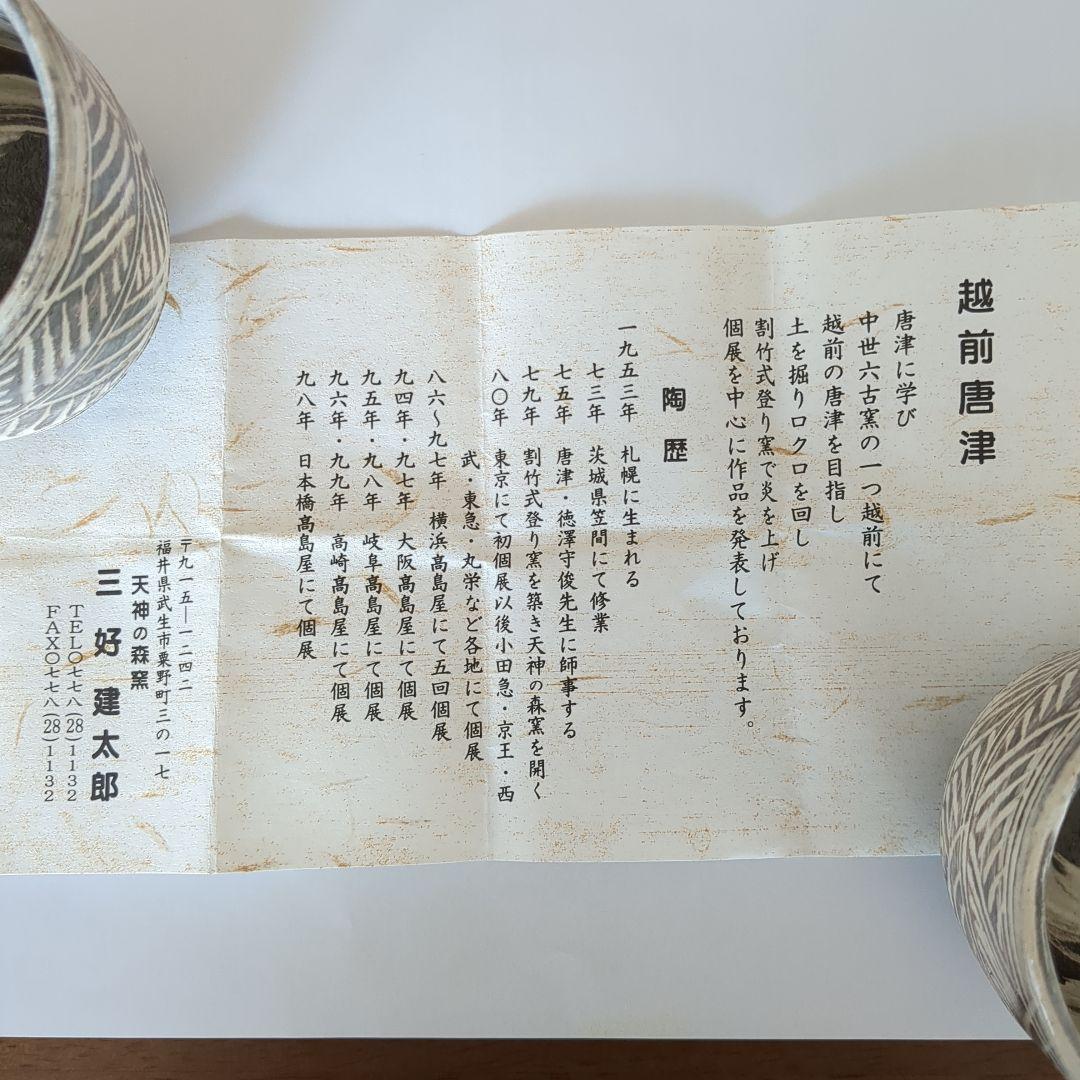 越前唐津
唐津に学び
中世六古窯の一つ越前にて
越前の唐津を目指し
土を掘りロクロを回し
割竹式登り窯で炎を上げ
個展を中心に作品を発表しております。
陶歴
一九五三年 札幌に生まれる
七三年 茨城県笠間にて修業
七五年 唐津・徳澤守俊先生に師事する
七九年 割竹式登り窯を築き天神の森窯を開く
八〇年 東京にて初個展以後小田急・京王・西
武・東急・丸栄など各地にて個展
八六〜九七年 横浜高島屋にて五回個展
九四年・九七年 大阪高島屋にて個展
九五年・九八年 岐阜高島屋にて個展
九六年・九九年 高崎高島屋にて個展
九八年 日本橋高島屋にて個展
〒九一五―一二四二
福井県武生市粟野町三の一七
天神の森窯
三好建太郎
TEL〇七七八(28)1132
FAX〇七七八(28)1132